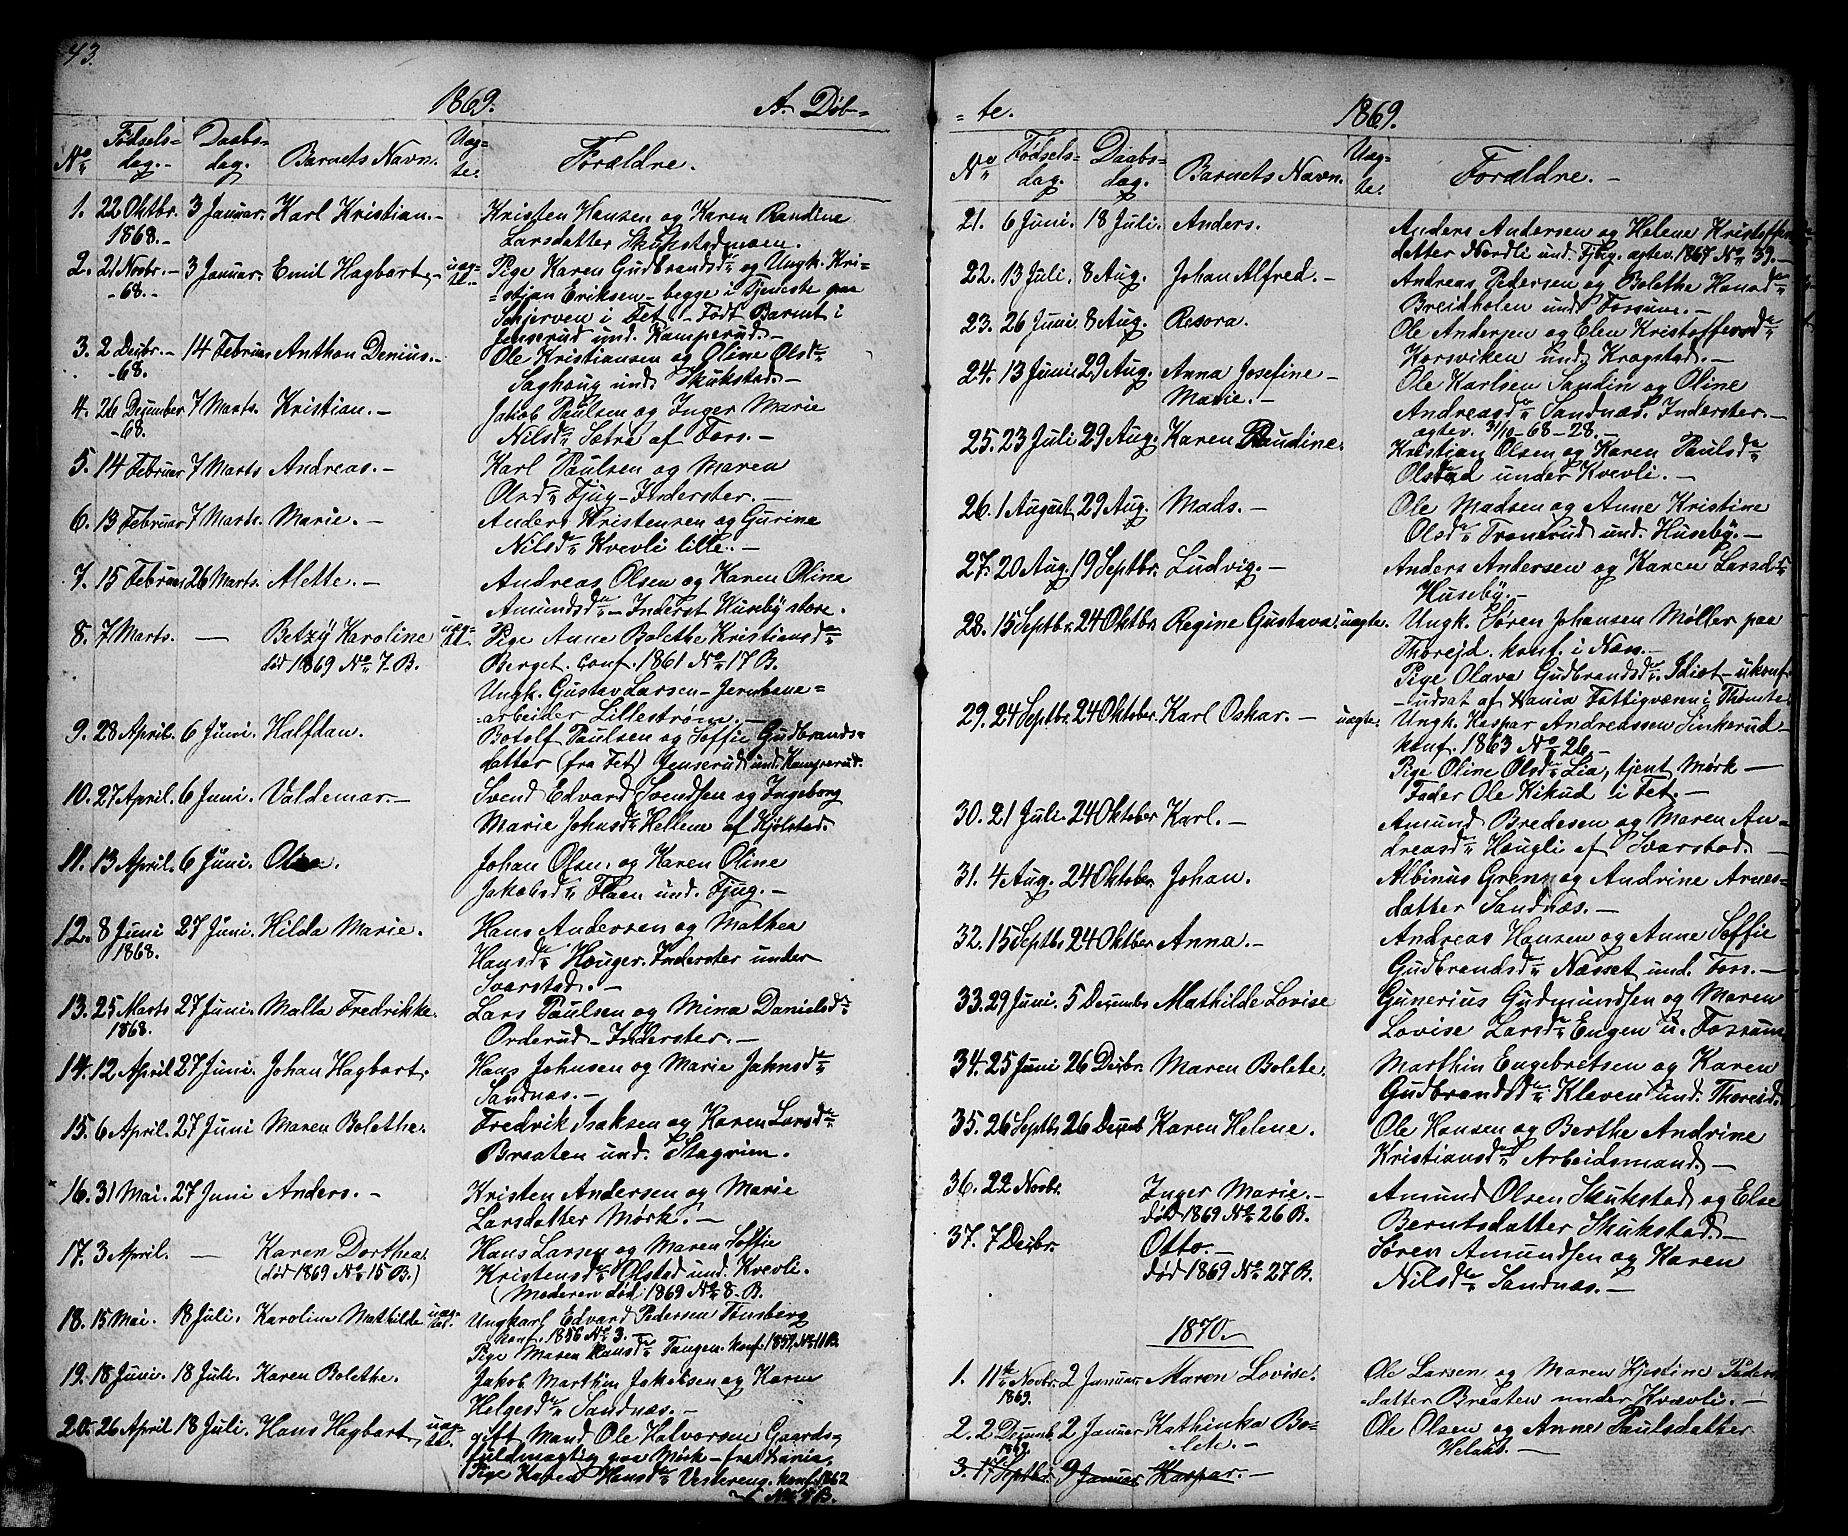 43.
1869. A. Døb-
No Fødsels-dag.- Daabs-dag. Barnets Navn. Uæg-te. Forældre.
1. 22 Oktbr. 3 Januar. Karl Kristian.- Kristen Hansen og Karen Randine
1868.- Larsdatter Skukstadmoen.
2. 21 Novbr.- 3 Januar. Emil Hagbart,- uæg-te. Pige Karen Gudbrandsd. og Ungk. Kri-
-68.- =stian Eriksen - begge i Tjeneste paa
Schjerven i Fet.- Født Barnet i
Jenserud und. Kamperud.-
3. 2 Decbr.- 14 Februar Anthon Denius.- Ole Kristiansen og Oline Olsd.
-68. Saghoug und. Skukstad.-
4. 26 December 7 Marts. Kristian.- Jakob Paulsen og Inger Marie
-68. Nilsd. Sætre af Fors.-
5. 14 Februar 7 Marts Andreas.- Karl Paulsen og Maren
Olsd. Fjug - Inderster.-
6. 13 Februar 7 Marts. Marie.- Anders Kristensen og Gurina
Nilsd. Kvevli lille.-
7. 15 Februar 26 Marts. Alette.- Andreas Olsen og Karen Olina
Amundsd. - Inderst Huseby store.
8. 7 Marts. — Betzy Karoline uæg-te. Pige Anne Bolethe Kristiansd.
død 1869 No 7. B. Berget. conf. 1861 No 17 B.
Ungk. Gustav Larsen - Jernbane=
arbeider Lillestrøm.-
9. 28 April. 6 Juni. Halfdan. Botolf Paulsen og Soffie Gudbrands-
datter (fra Fet) Jenserud und. Kamperud.
10. 27 April. 6 Juni. Valdemar.- Svend Edvard Svendsen og Ingeborg
Marie Johnsd. Hellem af Kjølstad.
11. 13 April. 6 Juni. Johan Olsen og Karen Oline
Jakobsd. Flaen und. Fjug.-
12. 8 Juni 27 Juni. Hilda Marie. Hans Andersen og Mathea
1868. Hansd. Houger. Inderster under
Svarstad.-
13. 25 Marts 27 Juni. Malta Fredrikke. Lars Paulsen og Mina Danielsd.
1868. Orderud - Inderster.-
14. 12 April 27 Juni. Johan Hagbart. Hans Johnsen og Marie Jahnsd.
Sandnæs.-
15. 6 April. 27 Juni Maren Bolethe. Fredrik Isaksen og Karen Larsd.
Braaten und. Stagrim.
16. 31 Mai. 27 Juni Anders.- Kristen Andersen og Marie
Larsdatter Mørk.-
17. 3 April. — Karen Dorthea. Hans Larsen og Maren Soffie
(død 1869 No 15 B.) Kristensd. Olstad und. Kvevli.
(Moderen død 1869 No 8. B.
18. 15 Mai. 18 Juli. Karoline Mathilde uæg-te. Ungkarl Edvard Pedersen Tønsberg
konf. 1856 No 3.-
Pige Maren Hansd. Tangen. konf. 1859, No 11 B.
19. 18 Juni. 18 Juli. Karen Bolethe. Jakob Marthin Jakobsen og Karen
Helgesd. Sandnæs.-
20.- 26 April 18 Juli. Hans Hagbart, uæg-te. gift Mand Ole Halvorsen Gaards-
fuldmægtig paa Mørk - fra
Pige Karen Hansd. Vestereng. konf. 1862
No 9 B.
=te. 1869.
No Fødsels-dag. Daabs-dag. Barnets Navn. Uæg-te. Forældre.-
21. 6 Juni. 18 Juli. Anders. Anders Andersen og Helene Kristoffer
datter Nordli und. Fjug. ægtev. 1867 No 39.-
22. 13 Juli. 8 Aug. Johan Alfred.- Andreas Pedersen og Bolethe Hansd.
Breidholen und Forsum.
23. 26 Juni. 8 Aug. Resora. Ole Andersen og Elen Kristoffersd.
Korsviken und. Krogstad.-
24. 13 Juni 29 Aug. Anna Josefine- Ole Karlsen Sandin og Oline
Marie.- Andreasd. Sandnæs. Inderster.-
ægtev. 31/10-68-28.-
25. 23 Juli 29 Aug. Karen Paudine. Kristian Olsen og Karen Paulsd.
Olstad under Kvevli.-
26. 1 August 29 Aug. Mads.- Ole Madsen og Anne Kristine
Olsd. Tronerud und. Huseby.-
27. 20 Aug. 19 Septbr. Ludvig.- Anders Andersen og Karen Larsd.
Huseby.-
28. 15 Septbr. 24 Oktbr. Regine Gustava. uægte. Ungk. Søren Johansen Møller paa
Thoreid. konf. i Næs.-
Pige Olava Gudbrandsd. Idiot - ukonf
-udsat af Fattigvæsen i
29. 24 Septbr. 24 Oktober Karl Oskar.- uægte. Ungk. Kaspar Andreassen Sinkerud
konf. 1863 No 26.-
Pige Oline Olsd. Lia, tjent Mørk-
Fader Ole Kikud i Fet.-
30. 21 Juli. 24 Oktober Karl.- Amund Bredesen og Maren An-
dreasd. Hougli af Svarstad.-
31. 4 Aug. 24 Oktober. Johan. Albinus Grenn og Andrine Arnes-
datter Sandnæs.-
32. 15 Septb. 24 Oktber Anna.- Andreas Hansen og Anne Soffie
Gudbrandsd. Næsset und. Fors.-
33. 29 Juni. 5 Decembr Mathilde Lovise Gunerius Gudmundsen og Maren
Lovise Larsd. Engen u. Fossum
34. 25 Juni 26 Decbr. Maren Bolete. Marthin Engebretsen og Karen
Gudbrandsd. Kleven und. Thoreid.
35. 26 Septb. 26 Decemb Karen Helene. Ole Hansen og Berthe Andrine
Kristiansd. Arbeidsmand.-
36. 22 Novbr. Inger Marie.- Amund Olsen Skukstad og Else
død 1869 No 26 B. Berntsdatter Skukstad.-
37. 7 Decbr. Otto.- Søren Amundsen og Karen
død 1869 No 27 B. Nilsd. Sandnæs.-
1870.-
1. 11te Novbr. 2 Januar Maren Lovise. Ole Larsen og Maren Kjestine Peders
1869. datter Braaten under Kvævli.-
2. 2 Decemb 2 Januar Kathinka Bo- Ole Olsen og Anne Paulsdatter
1869. lete.-
3. 17 Septbr. 9 Januar Kaspar.-